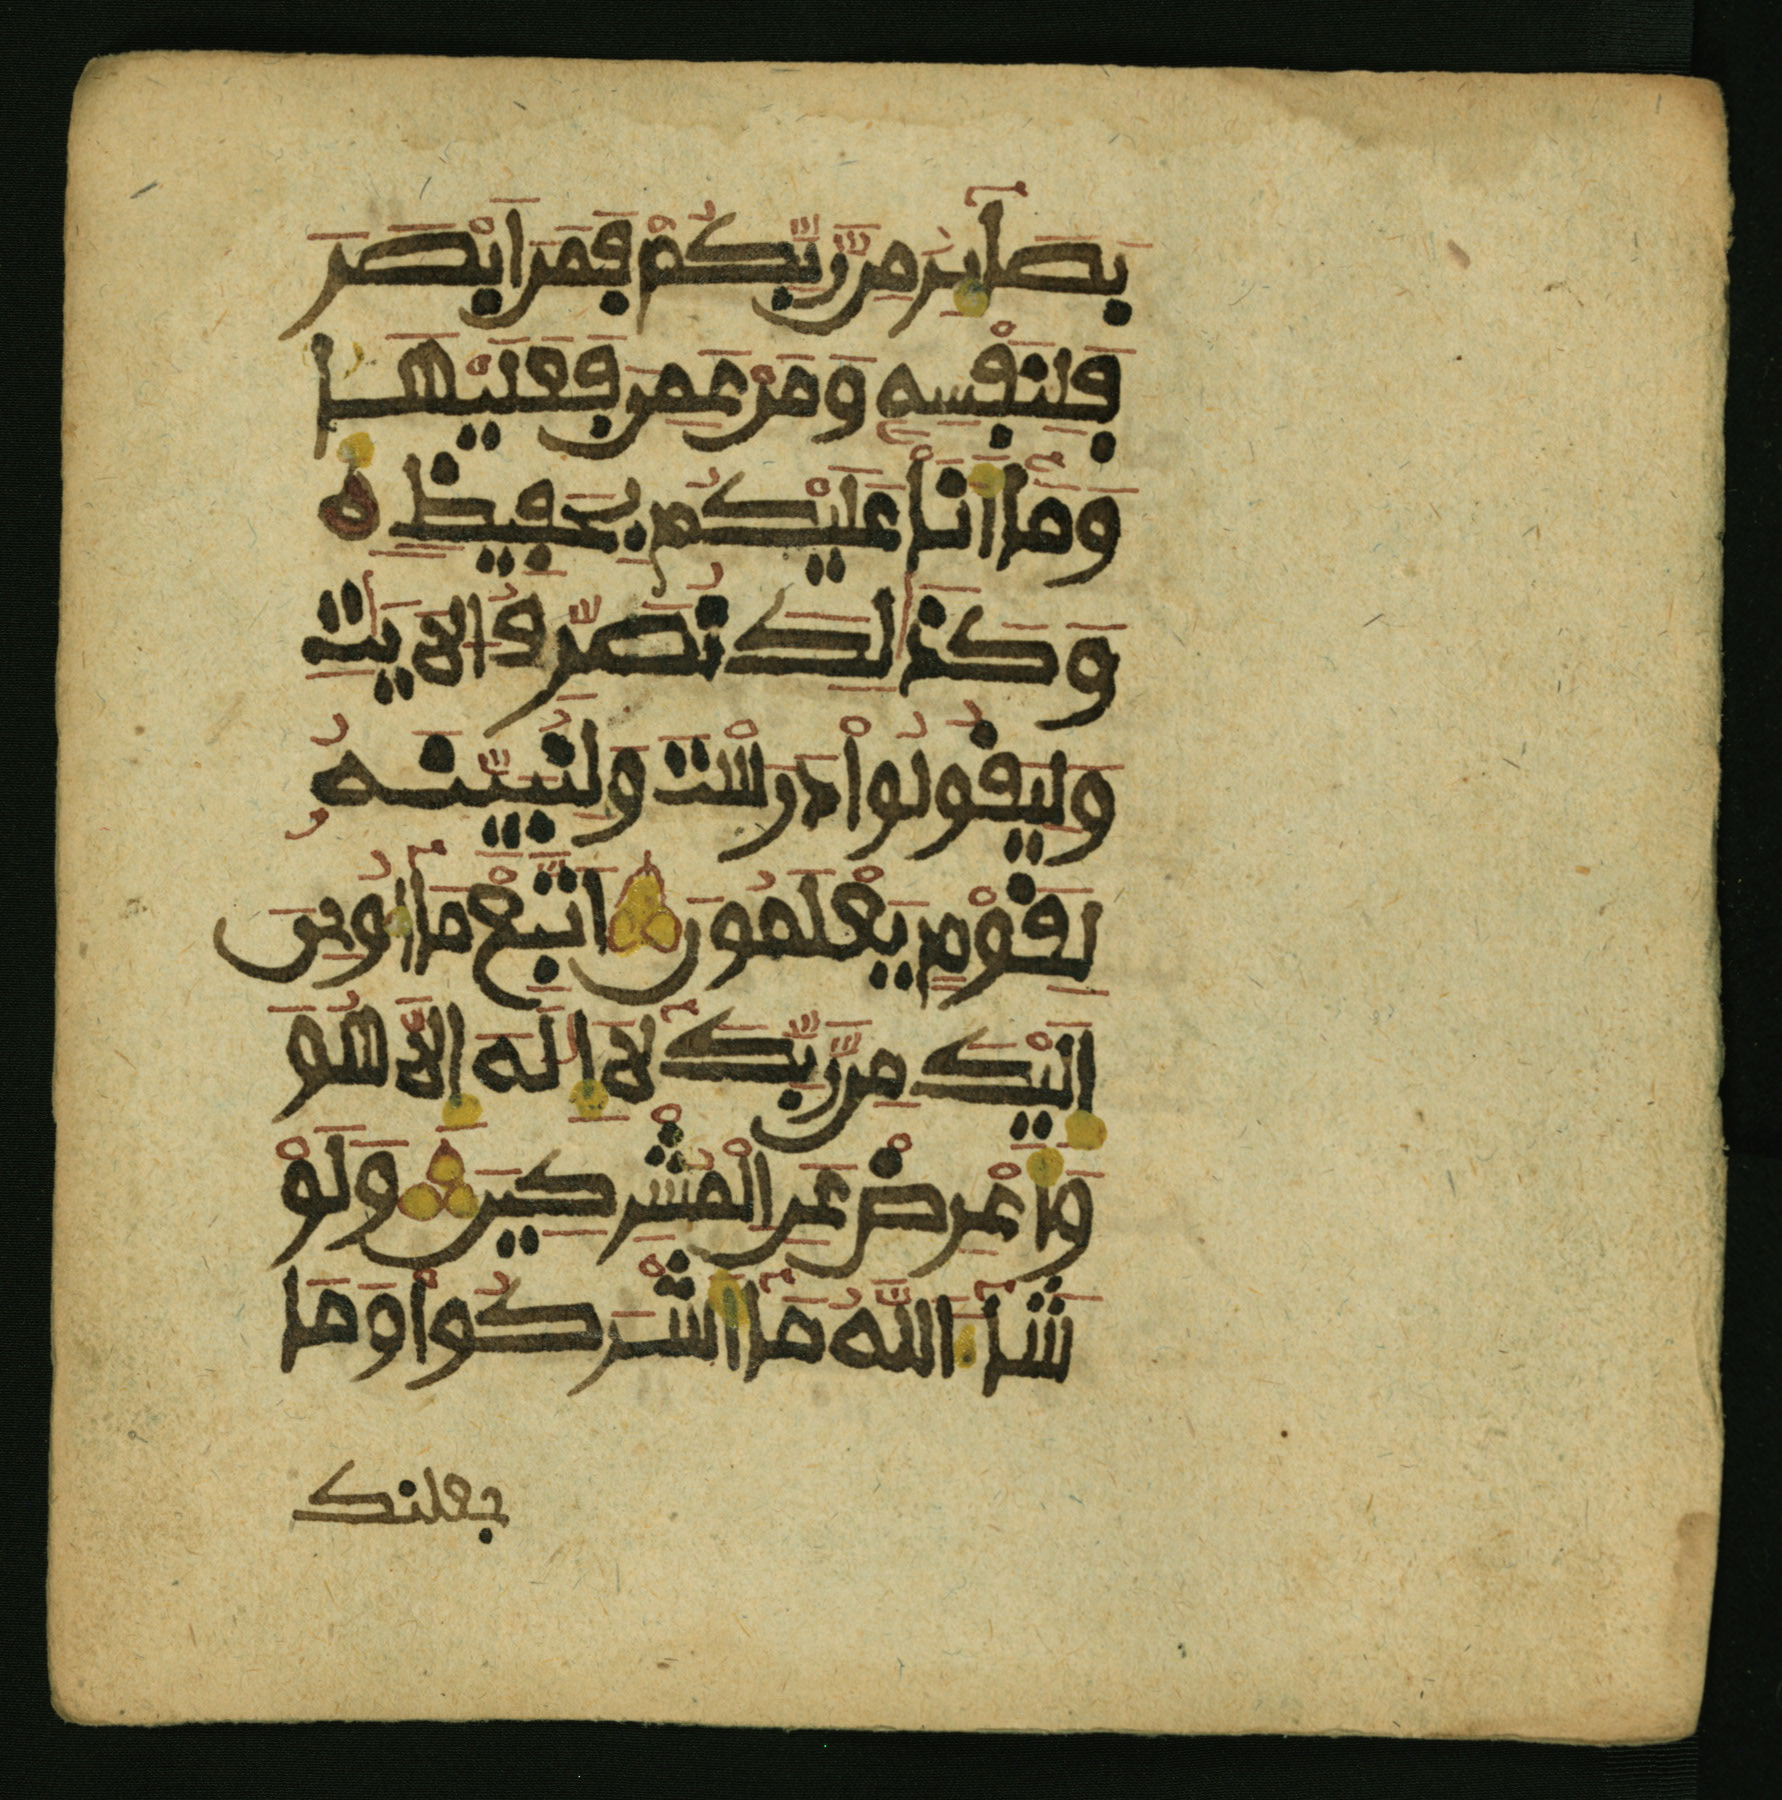 بَصَآئِرُ مِن رَّبِّكُمْ فَمَنَ اَبْصَرَ
فَلِنَفْسِهِ وَمَنْ عَمِىَ فَعَلَيْهَا
وَمَآ أَنَا عَلَيْكُم بِحَفِيظٍ ه
وَكَذَٰلِكَ نُصَرِّفُ الَايَٰتِ
وَلِيَقُولُواْ دَرَسْتَ وَلِنُبَيِّنَهُ
لِقَوْمٍ يَعْلَمُونَ اتَّبِعْ مَآ أُوحِىَ
إِلَيْكَ مِن رَّبِّكَ لَآ إِلَٰهَ إِلَّا هُوَ
وَأَعْرِضْ عَنِ الْمُشْرِكِينَ وَلَوْ
شَآءَ اللَّهُ مَآ أَشْرَكُواْ وَمَا
جعلنك